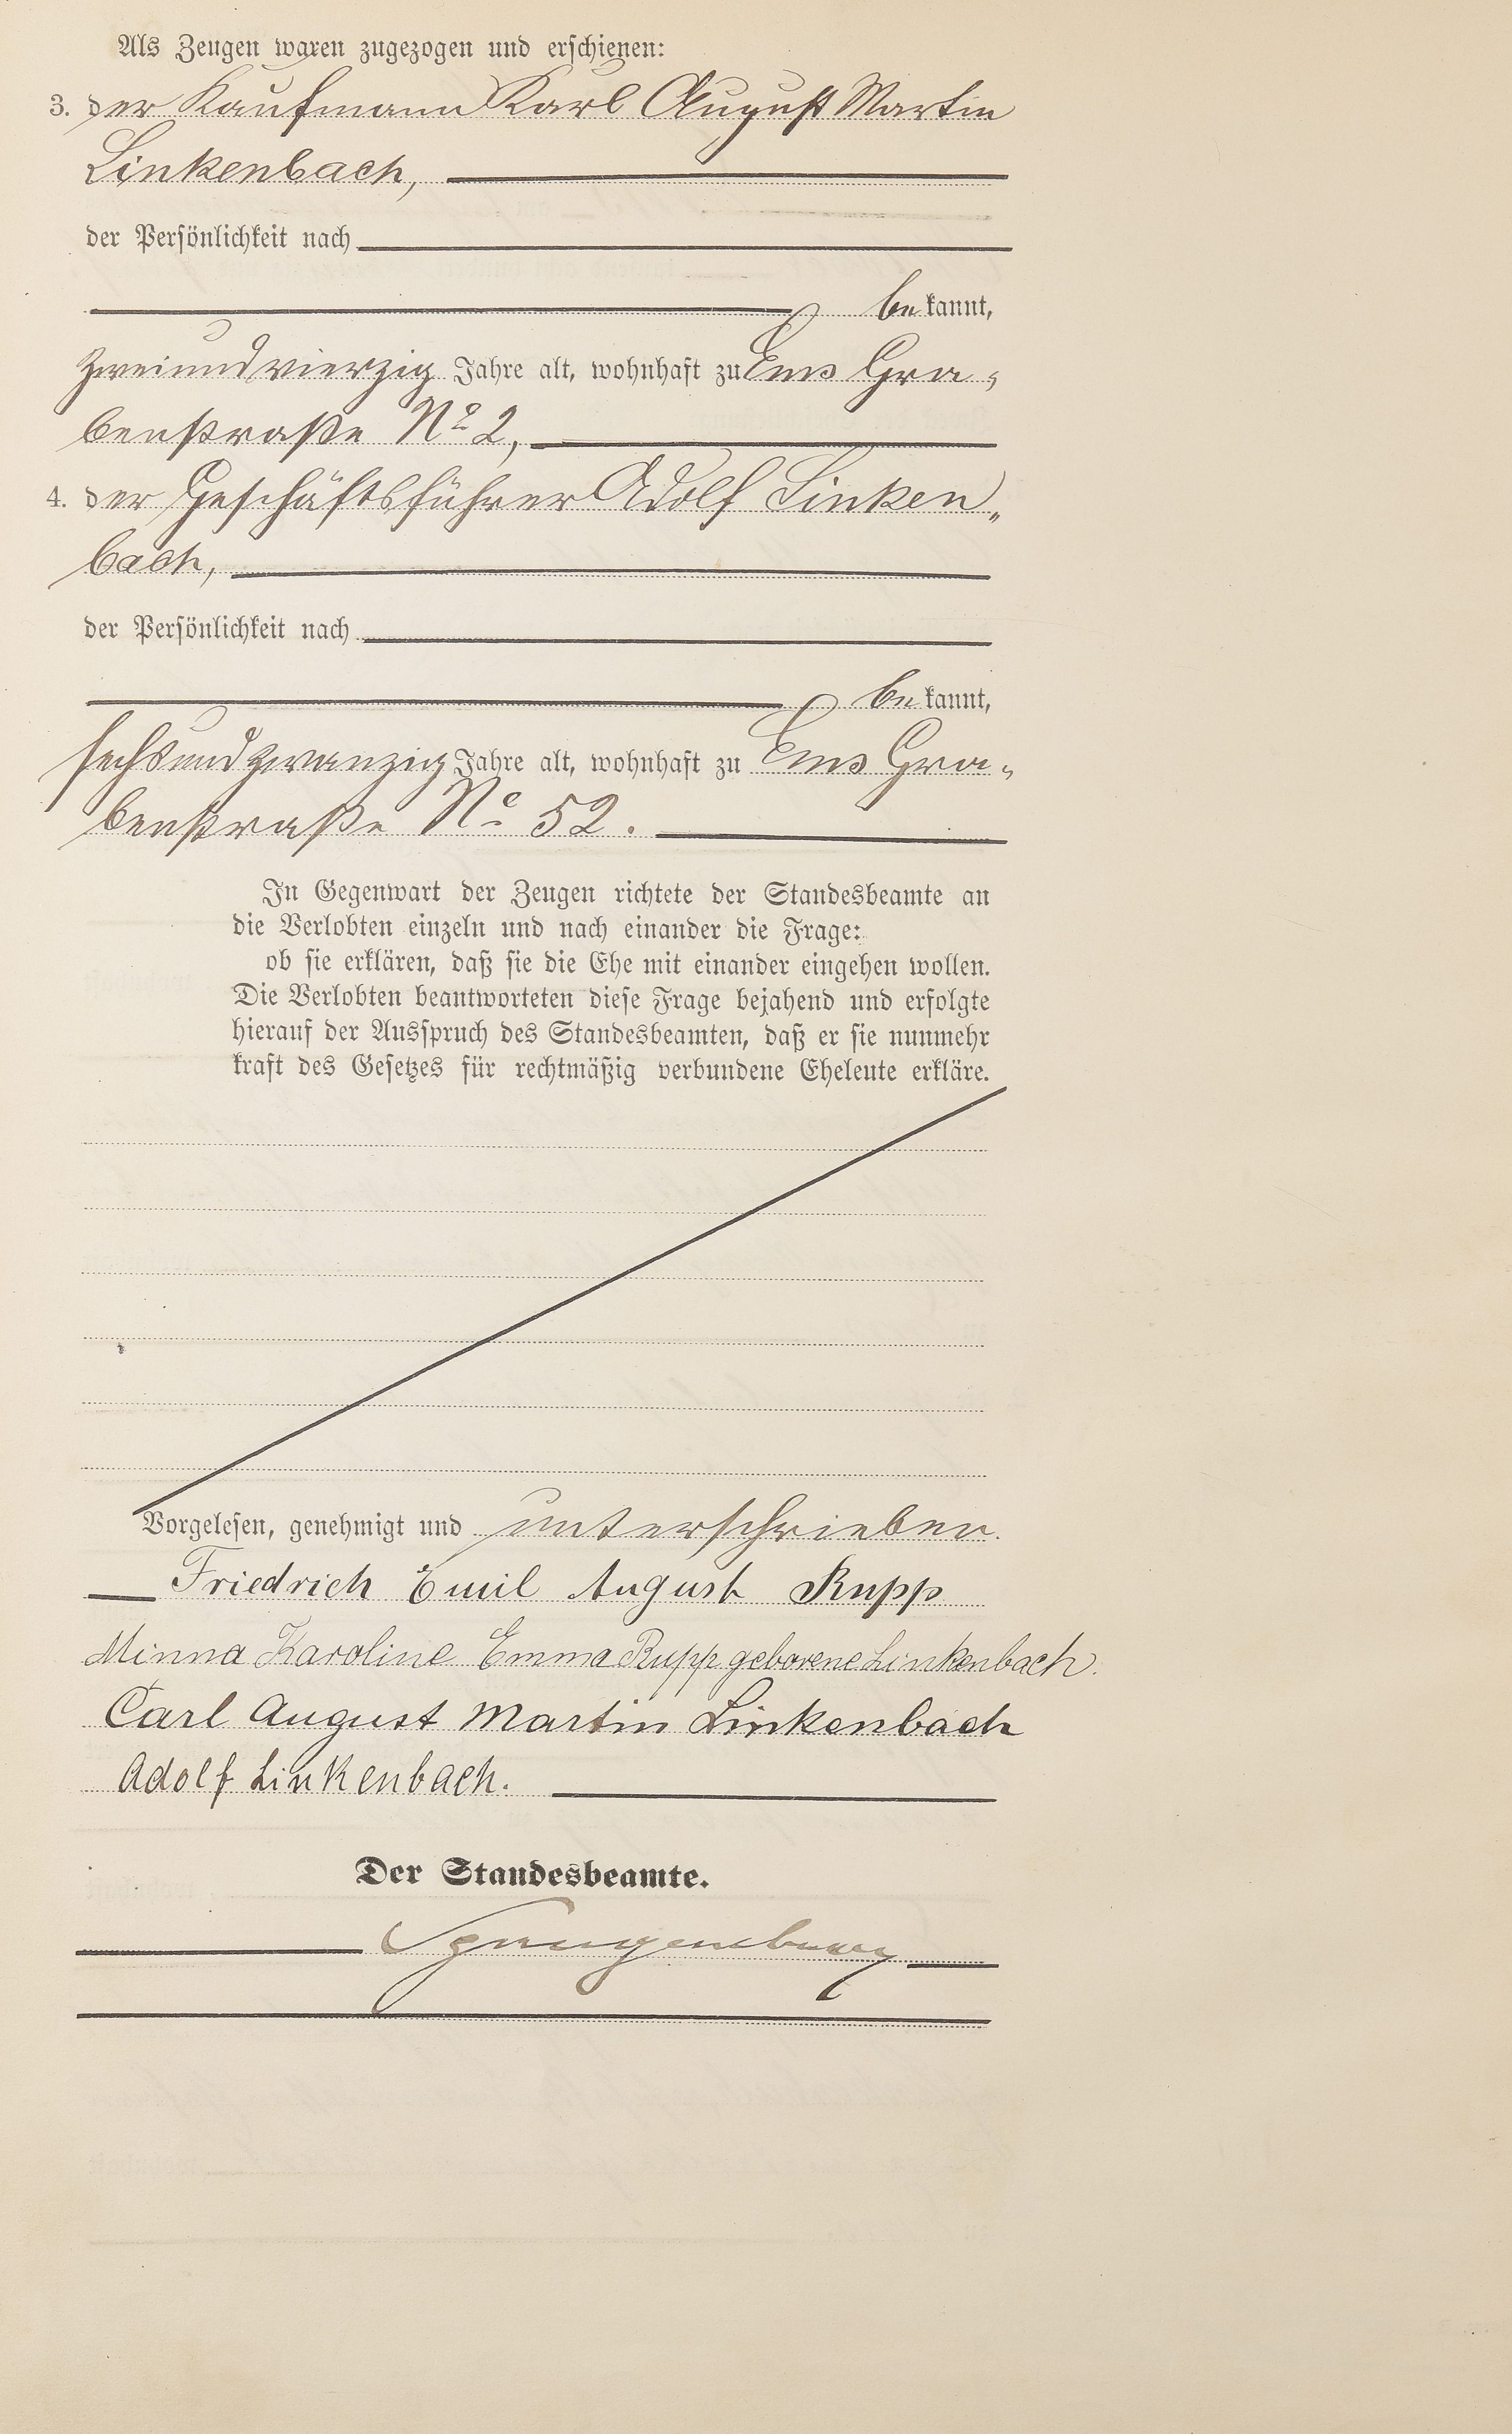 Als Zeugen waren zugezogen und erschienen:
3. der Kaufmann Karl August Martin
Linkenbach,
der Persönlichkeit nach
bekannt,
zweiundvierzig Jahre alt, wohnhaft zu Ems Gra-
benstraße No 2,
4. der Geschäftsführer Adolf Linken-
bach,
der Persönlichkeit nach
bekannt,
sechsundzwanzig Jahre alt, wohnhaft zu Ems Gra-
benstraße No 52.
In Gegenwart der Zeugen richtete der Standesbeamte an
die Verlobten einzeln und nach einander die Frage:
ob sie erklären, daß sie die Ehe mit einander eingehen wollen.
Die Verlobten beantworteten diese Frage bejahend und erfolgte
hierauf der Ausspruch des Standesbeamten, daß er sie nunmehr
kraft des Gesetzes für rechtmäßig verbundene Eheleute erkläre.
Vorgelesen, genehmigt und unterschrieben.
Friedrich Emil August Rupp
Minna Karoline Emma Rupp geborene Linkenbach.
Carl August Martin Linkenbach
Adolf Linkenbach.
Der Standesbeamte.
Spangenberg